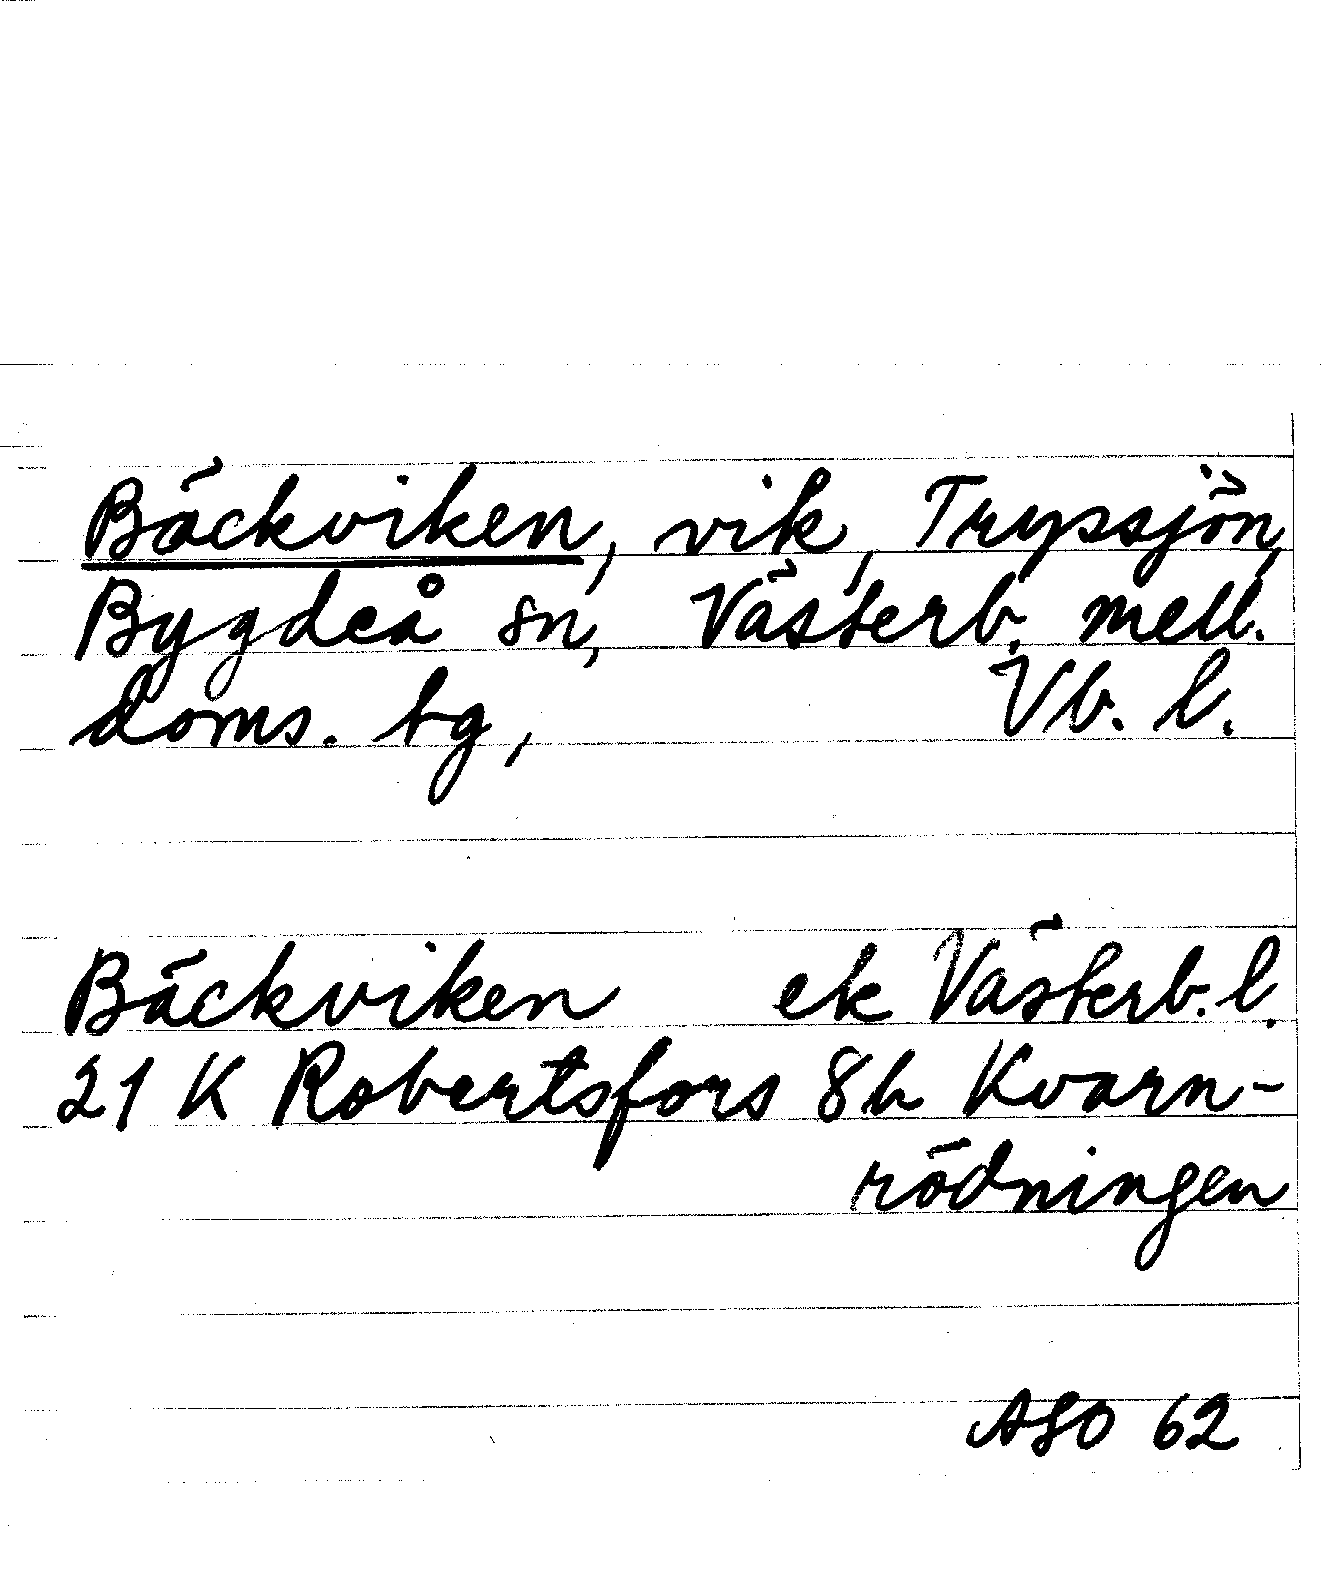 Bäckviken, vik, Tryssjön,
Bygdeå sn, Västerb. mell.
doms. tg, Vb. l.
Bäckviken ek Västerb. l.
21 K Robertsfors 8h Kvarn-
rödningen
ASO 62